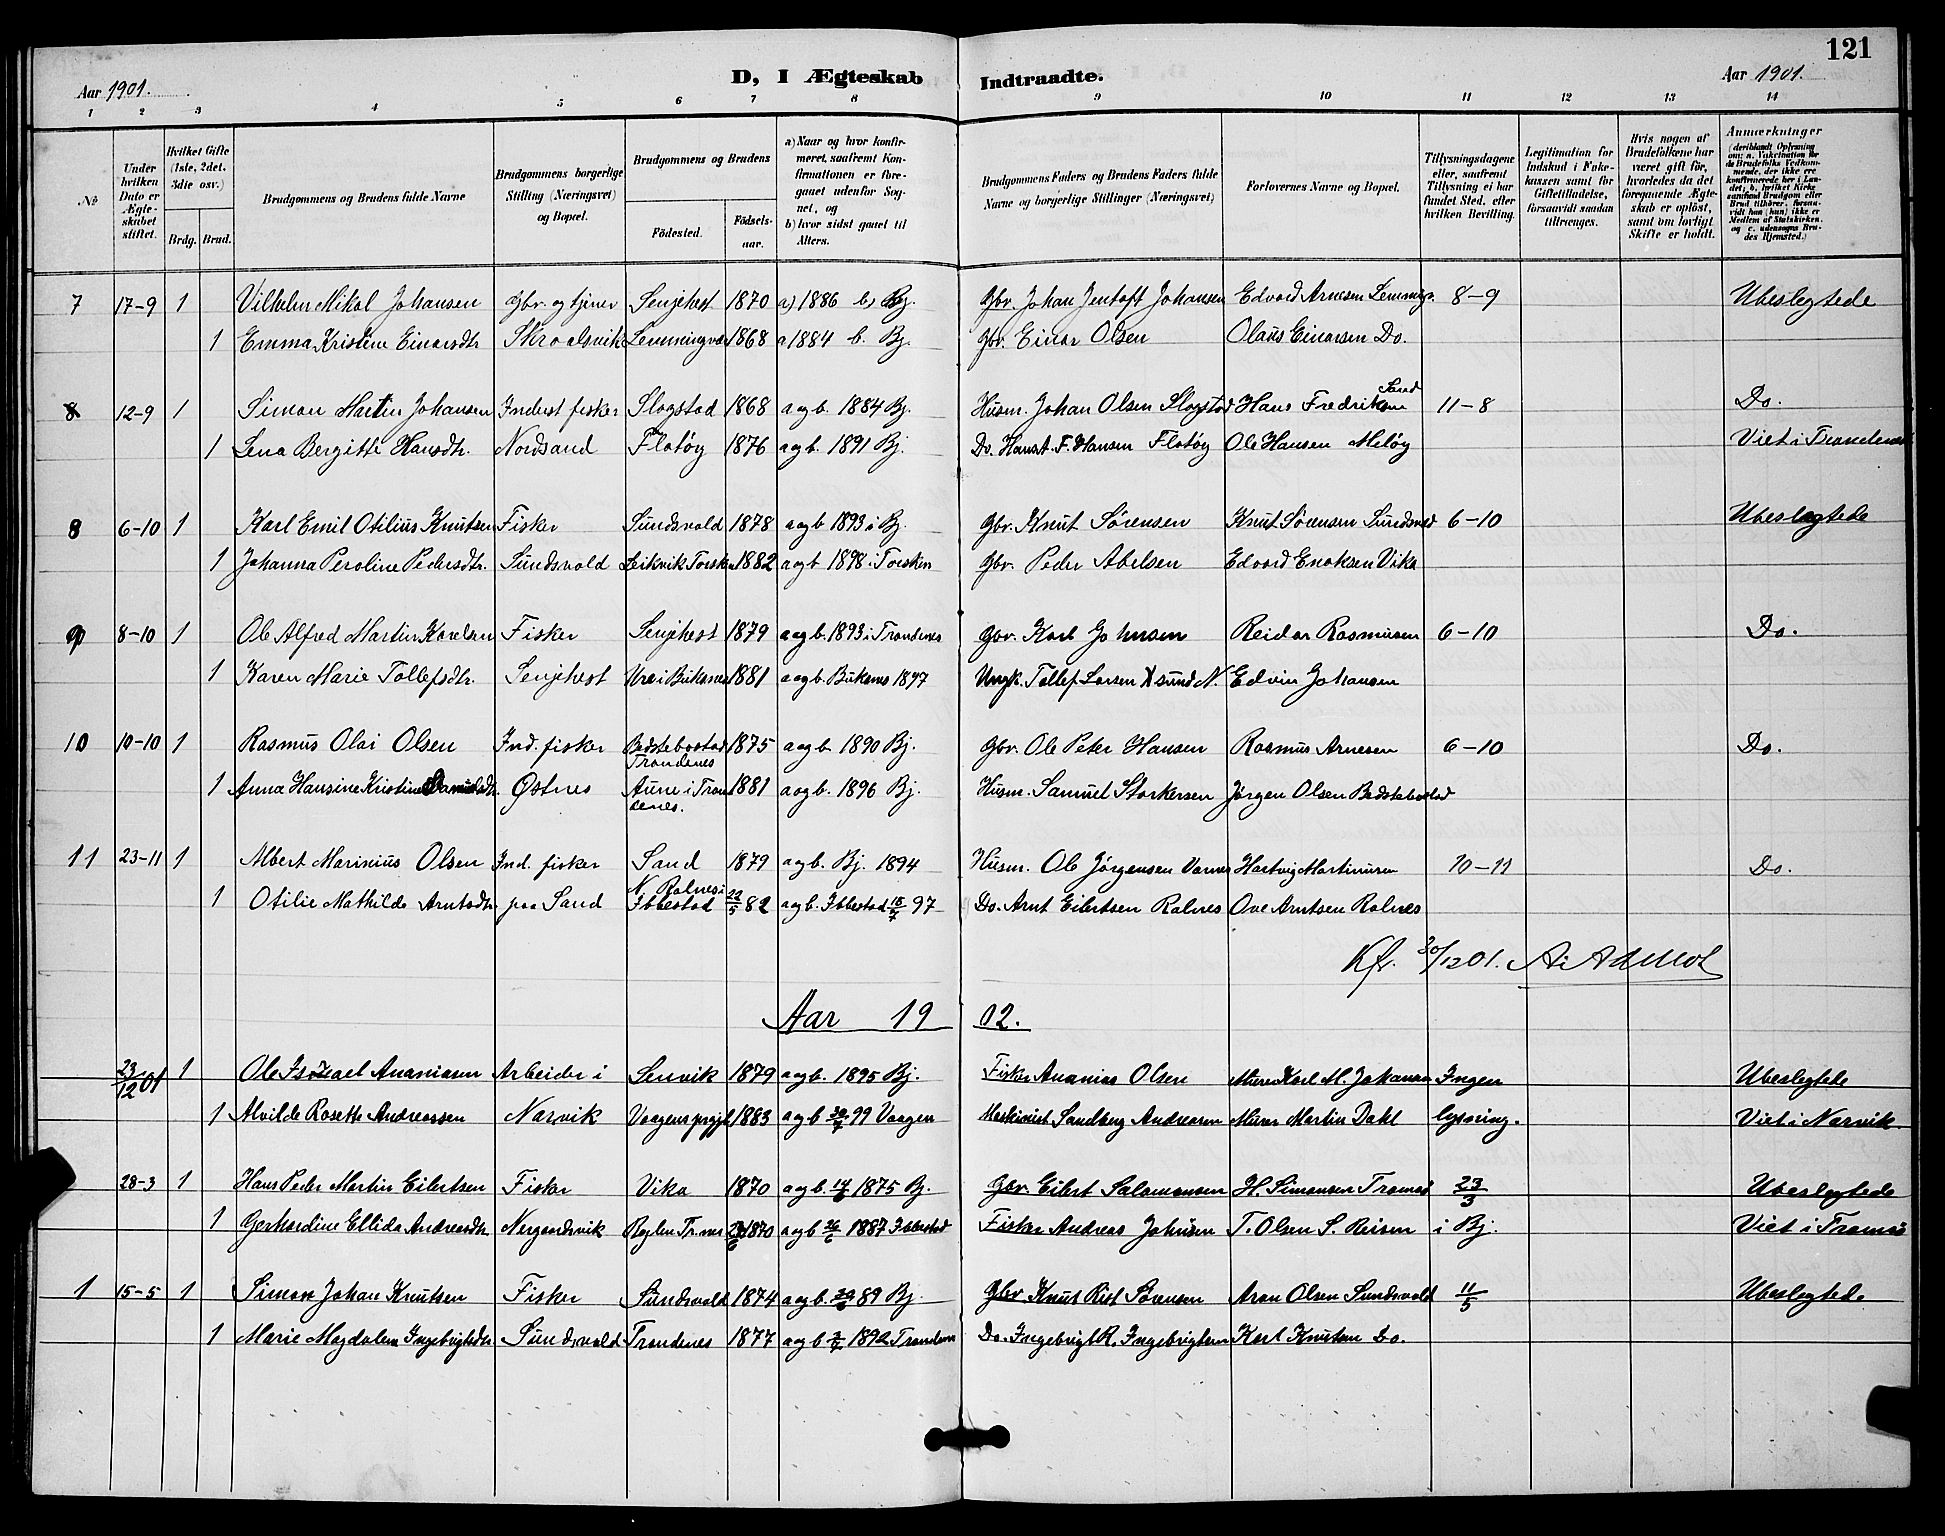 121
Aar 1901. D, I Ægteskab Indtraadte. Aar 1901.
1 2 3 4 5 6 7 8 9 10 11 12 13 14
No
Under hvilken Dato er Ægteskabet stiftet.
Hvilket Gifte (1ste, 2det, 3die osv.)
Brdg. Brud.
Brudgommens og Brudens fulde Navne
Brudgommens borgerlige Stilling (Næringsvei) og Bopæl.
Brudgommens og Brudens
Födested. Födselsaar.
a) Naar og hvor konfirmeret, saafremt Konfirmationen er foregaaet udenfor Sognet, og
b) hvor sidst gaaet til Alters.
Brudgommens Faders og Brudens Faders fulde Navne og borgerlige Stillinger (Næringsvei)
Forlovernes Navne og Bopæl.
Tillysningsdagene eller, saafremt Tillysning ei har fundet Sted, efter hvilken Bevilling.
Legitimation for Indskud i Enkekassen samt for Giftetilladelse, forsaavidt saadan tiltrænges.
Hvis nogen af Brudefolkene har været gift för, hvorledes da det foregaaende Ægteskab er oplöst, samt om lovligt Skifte er holdt.
Anmærkninger (deriblandt Oplysning om: a. Vakcination for de Brudefolks Vedkommende, der ikke ere konfirmerede her i Landet; b. hvilket Kirkesamfund Brudgom eller Brud tilhörer, forsaavidt han (hun) ikke er Medlem af Statskirken, og c. udensogns Brudes Hjemsted.)
7 17-9 1 Vilhelm Mikal Johansen Gbr. og tjener Senjehest 1870 a) 1886 b) Bj. Gbr. Johan Jentoft Johansen Edvard Arnesen 8-9 Ubeslegtede
1 Emma Kristine Einarsdtr Skroalsvik 1868 a 1884 b. Bj. Gbr. Einar Olsen Olaus Einarsen Do.
8 12-9 1 Simon Martin Johansen Inderst fisker Slogstad 1868 a og b. 1884 Bj. Husm. Johan Olsen Slogstad Hans Fredriksen Sand 11-8 Do.
1 Lena Bergitte Hansdtr. Nordsand Flatöy 1876 a og b. 1891 Bj. Do. F. Hansen Flatöy Ole Hansen Melöy Viet i
8 6-10 1 Karl Emil Otilius Knutsen Fisker Sundsvold 1878 a og b 1893 i Bj. Gbr. Knut Sörensen Knut Sörensen 6-10 Ubeslegtede
1 Johanna Peroline Pedersdtr. Sundsvold Leikvik Torsken 1882 a og b 1898 i Torsken Gbr. Peder Abelsen Edvard Enoksen Vika
9 8-10 1 Ole Alfred Martin Karelsen Fisker Senjehest 1879 a og b. 1893 i Trondenes Gbr. Karl Johnsen Reidar Rasmusen 6-10 Do.
1 Karen Marie Tollefsdtr. Senjehest 1881 a og b. Buksnes 1897 Ungk. Tollef Larsen Xsund N. Edvin Johansen
10 10-10 1 Rasmus Olai Olsen Ind. fisker Bedstebostad Trondenes 1875 a og b 1890 Bj. Gbr. Ole Peter Hansen Rasmus Arnesen 6-10 Do.
1 Anna Hansine Kristine Samuelsdtr. Östnes Aune i Trondenes. 1881 a og b. 1896 Bj. Husm. Samuel Storkersen Jörgen Olsen Bedstebostad
11 23-11 1 Albert Marinius Olsen Ind. fisker Sand 1879 a og b. Bj. 1894 Husm. Ole Jörgensen Vornes Hartvig Martinusen 10-11 Do.
1 Otilie Mathilde Arntsdtr. paa Sand N. Rolnes i Ibbestad 22/5 82 a og b. Ibbestad 18/7 97 Do. Arnt Eilertsen Rolnes Ove Arntsen Rolnes
Kfr. 30/12 01.
Aar 1902.
23/12 01 1 Ole Israel Ananiasen Arbeider i Senvik 1879 a og b. 1895 Bj. Fisker Ananias Olsen Murer Karl M. Johansen Ingen Ubeslegtede
1 Alvilde Rosette Andreassen Narvik 1883 a og b 30/7 99 Vaagen Maskinist Sandberg Andreasen Murer Martin Dahl lysning. Viet i Narvik
28-3 1 Hans Peder Martin Eilertsen Fisker Vika 1870 a og b. 1875 Bj. Gbr. Eilert Salamonsen H. Simonsen Tromsö 23/3 Ubeslegtede
1 Gerhardine Ellida Andreasdtr. 1870 a og b 26/6 1887 Ibbestad Fisker Andreas Johnsen T. Olsen S. Reisen i Bj. Viet i Tromsö
1 15-5 1 Simon Johan Knutsen Fisker Sundsvold 1874 a og b. 89 Bj. Gbr Knut Rist Sörensen Aron Olsen Sundsvold 11/5 Ubeslegtede
1 Marie Magdalena Ingebrigtsdtr. Sundsvold Trondenes 1877 a og b 1892 Trondenes Do. Ingebrigt R. Ingebrigtsen Karl Knutsen Do.